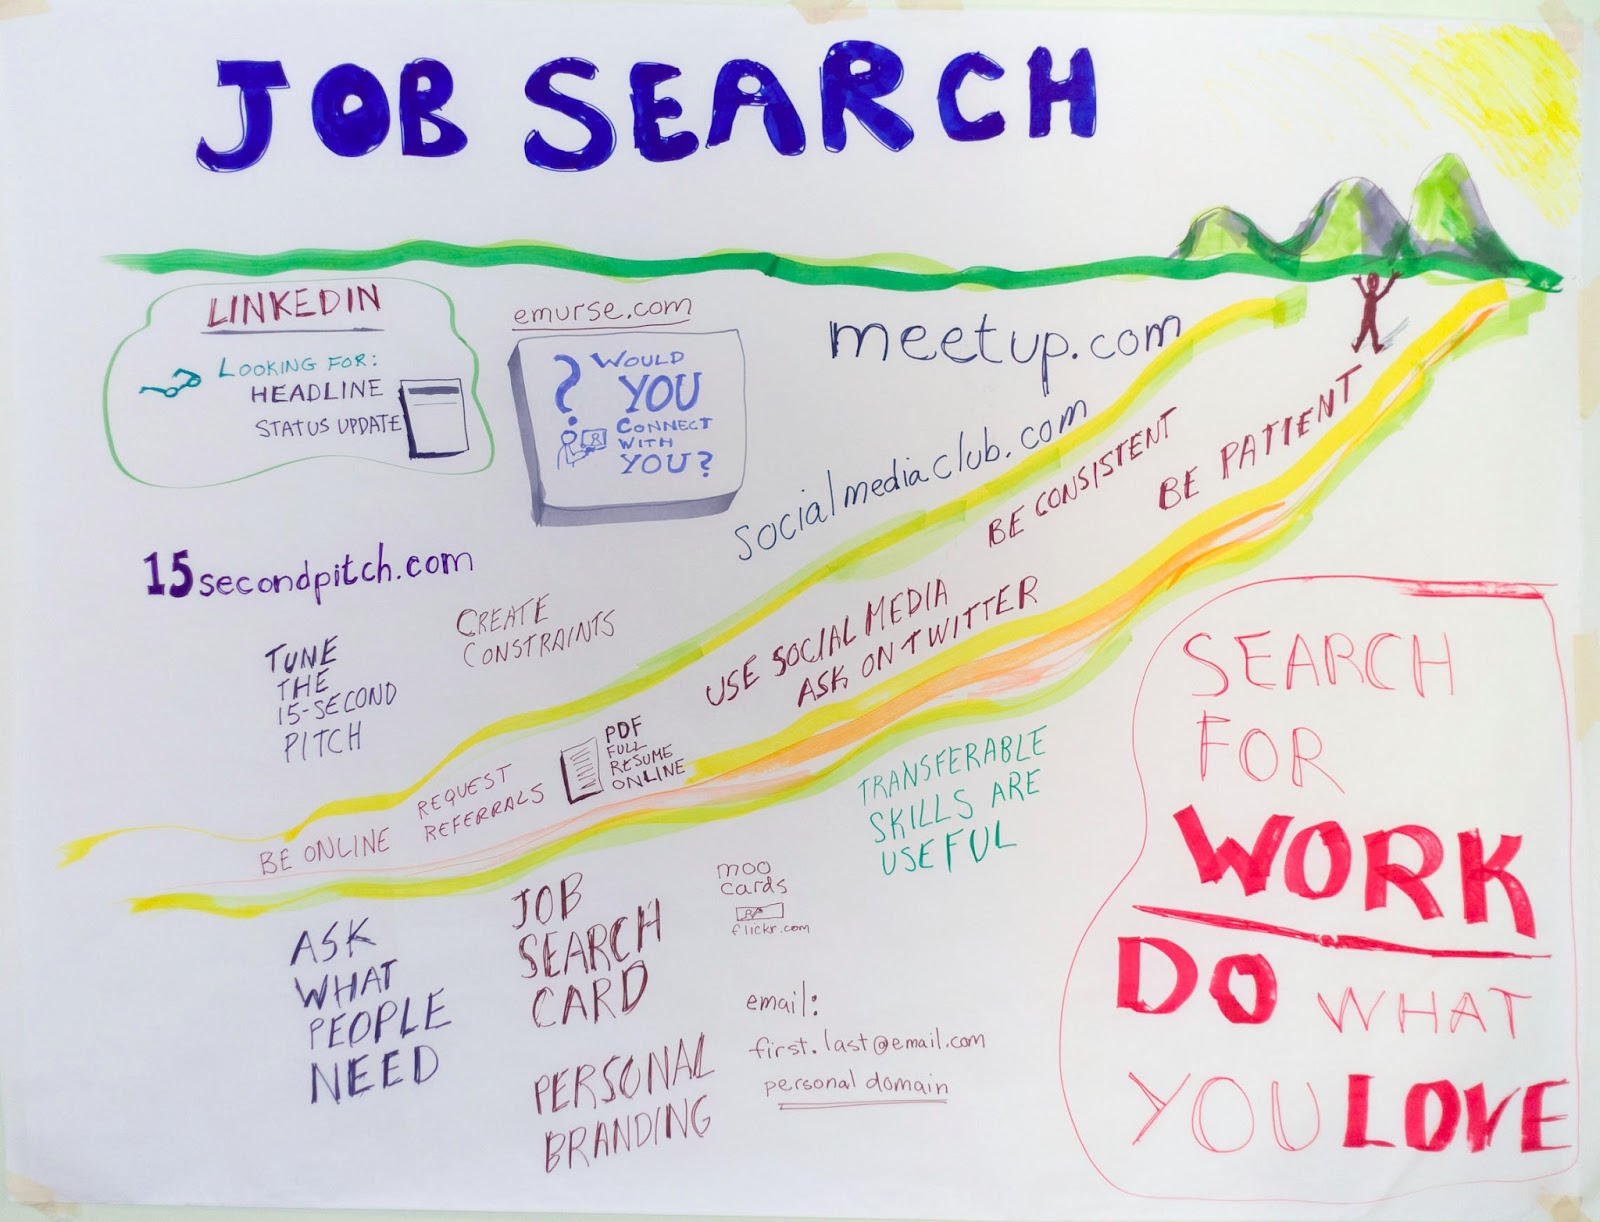 JOB SEARCH
LINKEDIN
LOOKING FOR:
HEADLINE
STATUS UPDATE
emurse.com
? WOULD
YOU
CONNECT
WITH
YOU?
meetup.com
socialmediaclub.com
15secondpitch.com
TUNE
THE
15-SECOND
PITCH
CREATE
CONSTRAINTS
BE ONLINE
REQUEST
REFERRALS
PDF
FULL
RESUME
ONLINE
USE SOCIAL MEDIA
ASK ON TWITTER
BE CONSISTENT
BE PATIENT
TRANSFERABLE
SKILLS ARE
USEFUL
ASK
WHAT
PEOPLE
NEED
JOB
SEARCH
CARD
PERSONAL
BRANDING
moo
cards
flickr.com
email:
first.last@email.com
personal domain
SEARCH
FOR
WORK
DO WHAT
YOU LOVE